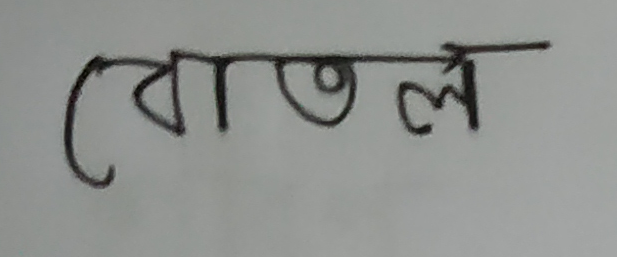 বোতল